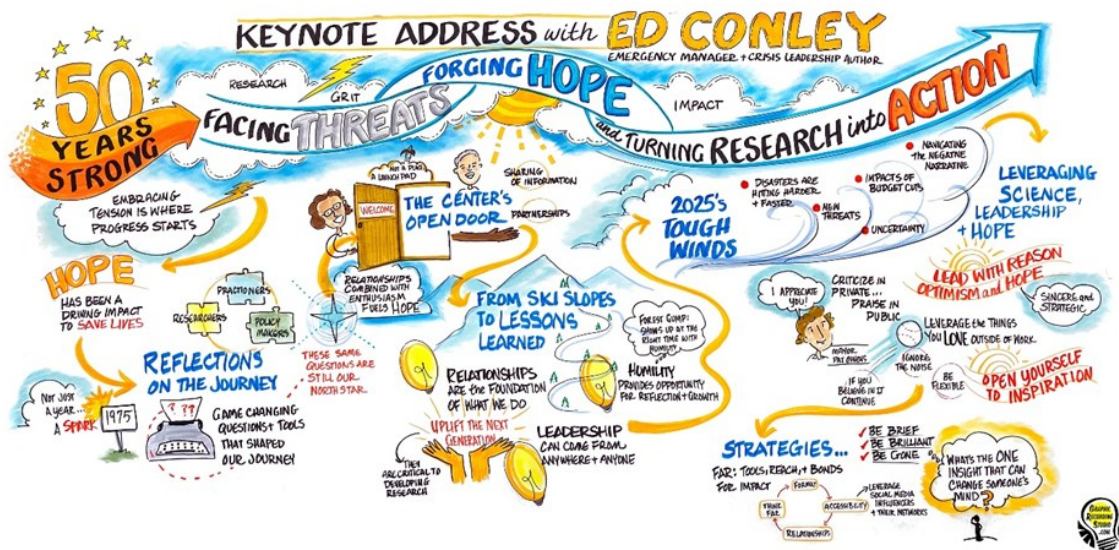 KEYNOTE ADDRESS with ED CONLEY
EMERGENCY MANAGER + CRISIS LEADERSHIP AUTHOR
50
YEARS
STRONG
RESEARCH
GRIT
FACING THREATS
FORGING HOPE
IMPACT
and TURNING RESEARCH into ACTION
EMBRACING
TENSION IS WHERE
PROGRESS STARTS
HOPE
HAS BEEN A
DRIVING IMPACT
TO SAVE LIVES
NOT JUST
A YEAR...
A SPARK
1975
PRACTIONERS
RESEARCHERS
POLICY
MAKERS
REFLECTIONS
ON THE JOURNEY
? ? ?
GAME CHANGING
QUESTIONS + TOOLS
THAT SHAPED
OUR JOURNEY
THESE SAME
QUESTIONS ARE
STILL OUR
NORTH STAR
NOT A PLACE
A LAUNCH PAD
WELCOME
THE CENTER'S
OPEN DOOR
SHARING
OF INFORMATION
PARTNERSHIPS
RELATIONSHIPS
COMBINED WITH
ENTHUSIASM
FUELS HOPE
FROM SKI SLOPES
TO LESSONS
LEARNED
FOREST GUMP:
SHOWS UP AT THE
RIGHT TIME WITH
HUMILITY
RELATIONSHIPS
ARE the FOUNDATION
OF WHAT WE DO
HUMILITY
PROVIDES OPPORTUNITY
FOR REFLECTION + GROWTH
UPLIFT THE NEXT
GENERATION
THEY
ARE CRITICAL TO
DEVELOPING
RESEARCH
LEADERSHIP
CAN COME FROM
ANYWHERE + ANYONE
2025'S
TOUGH
WINDS
DISASTERS ARE
HITING HARDER
+ FASTER
NEW
THREATS
IMPACTS OF
BUDGET CUTS
UNCERTAINTY
NAVIGATING
THE NEGATIVE
NARRATIVE
LEVERAGING
SCIENCE,
LEADERSHIP
+ HOPE
LEAD WITH REASON
OPTIMISM and HOPE
SINCERE and
STRATEGIC
I APPRECIATE
YOU!
CRITICIZE IN
PRIVATE...
PRAISE IN
PUBLIC
LEVERAGE the THINGS
YOU LOVE OUTSIDE OF WORK
IGNORE
THE NOISE
IF YOU
BELIEVE IN IT
CONTINUE
BE
FLEXIBLE
OPEN YOURSELF
TO INSPIRATION
STRATEGIES...
FAR: TOOLS, REACH, + BONDS
FOR IMPACT
BE BRIEF
BE BRILLIANT
BE GONE
FORMAT
THINK
FAR
ACCESSIBILITY
RELATIONSHIPS
LEVERAGE
SOCIAL MEDIA
INFLUENCERS
+ THEIR NETWORKS
WHAT'S THE ONE
INSIGHT THAT CAN
CHANGE SOMEONE'S
MIND?
GRAPHIC
RECORDING
STUDIO
.COM